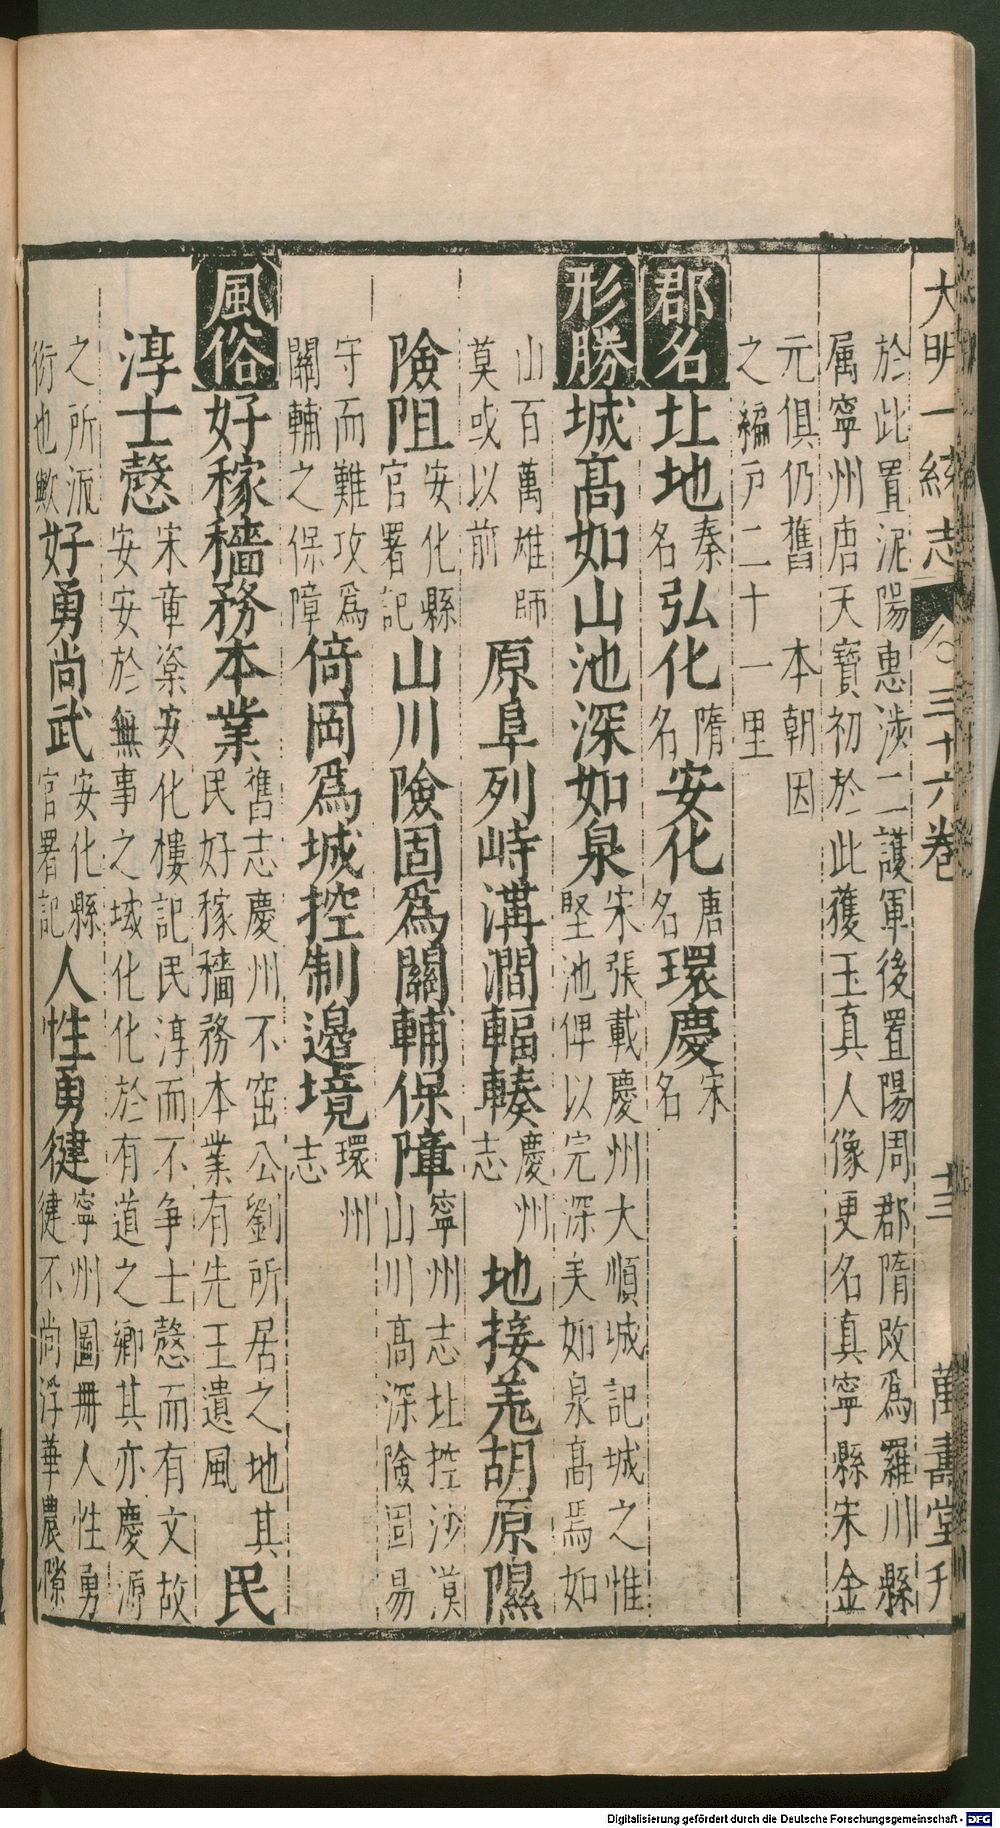 大明一統志 三十六卷 十三 萬壽堂刋
於此置泥陽惠涉二護軍後置陽周郡隋改爲羅川縣
属寧州唐天寶初於此獲玉真人像更名真寧縣宋金
元俱仍舊 本朝因
之編戸二十一里
郡名 北地 秦名 弘化 隋名 安化 唐名 環慶 宋名
形勝 城高如山池深如泉 宋張載慶州大順城記城之惟
堅池俾以完深美如泉高焉如
山百萬雄師
莫或以前 原阜列峙溝澗輻輳 慶州志 地接羗胡原隰
險阻 安化縣官署記 山川險固爲關輔保障 寧州志北控沙漠
山川高深險固易
守而難攻爲
關輔之保障 倚岡爲城控制邊境 環州志
風俗 好稼穡務本業 舊志慶州不窋公劉所居之地其
民好稼穡務本業有先王遺風 民
淳士慤 宋章楶安化樓記民淳而不争士慤而有文故
安安於無事之域化化於有道之鄉其亦慶源
之所派
衍也歟 好勇尚武 安化縣官署記 人性勇健 寧州圖冊人性勇
健不尚浮華農隙
Digitalisierung gefördert durch die Deutsche Forschungsgemeinschaft - DFG